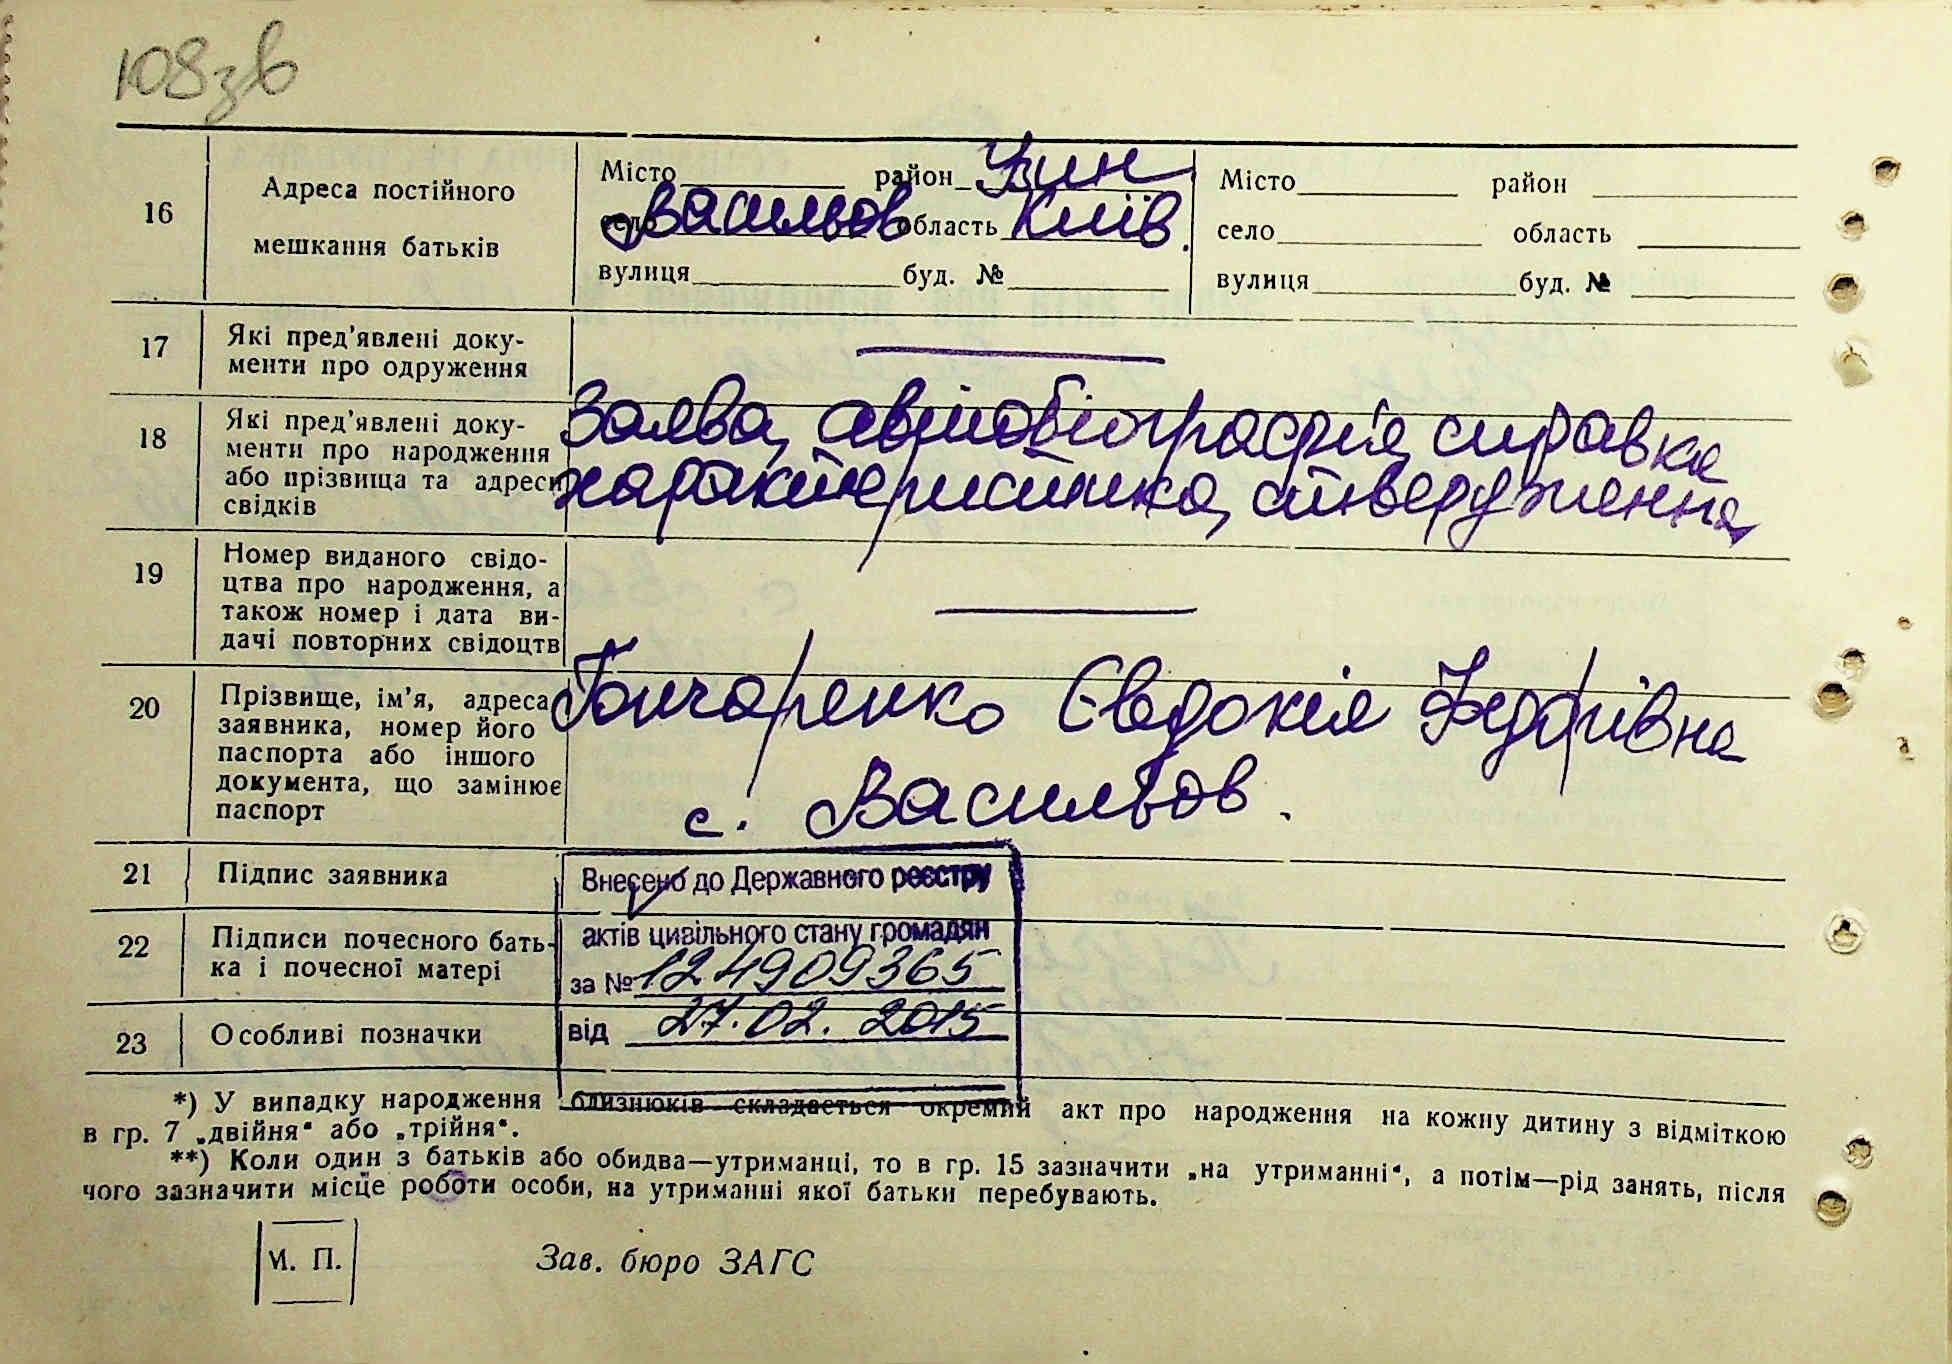 108зв
16 Адреса постійного мешкання батьків
Місто район Узин
село Васильов область Київ.
вулиця буд. №
Місто район
село область
вулиця буд. №
17 Які пред'явлені доку-
менти про одруження
18 Які пред'явлені доку-
менти про народження
або прізвища та адреси
свідків
Заява, автобіографія, справка
характеристика, ствердження
19 Номер виданого свідо-
цтва про народження, а
також номер і дата ви-
дачі повторних свідоцтв
20 Прізвище, ім'я, адреса
заявника, номер його
паспорта або іншого
документа, що замінює
паспорт
Гончаренко Євдокія Федорівна
с. Васильов.
21 Підпис заявника
22 Підписи почесного бать-
ка і почесної матері
23 Особливі позначки
Внесено до Державного реєстру
актів цивільного стану громадян
за № 124909365
від 27.02.2015
*) У випадку народження близнюків складається окремий акт про народження на кожну дитину з відміткою
в гр. 7 „двійня" або „трійня".
**) Коли один з батьків або обидва—утриманці, то в гр. 15 зазначити „на утриманні", а потім—рід занять, після
чого зазначити місце роботи особи, на утриманні якої батьки перебувають.
М. П.
Зав. бюро ЗАГС